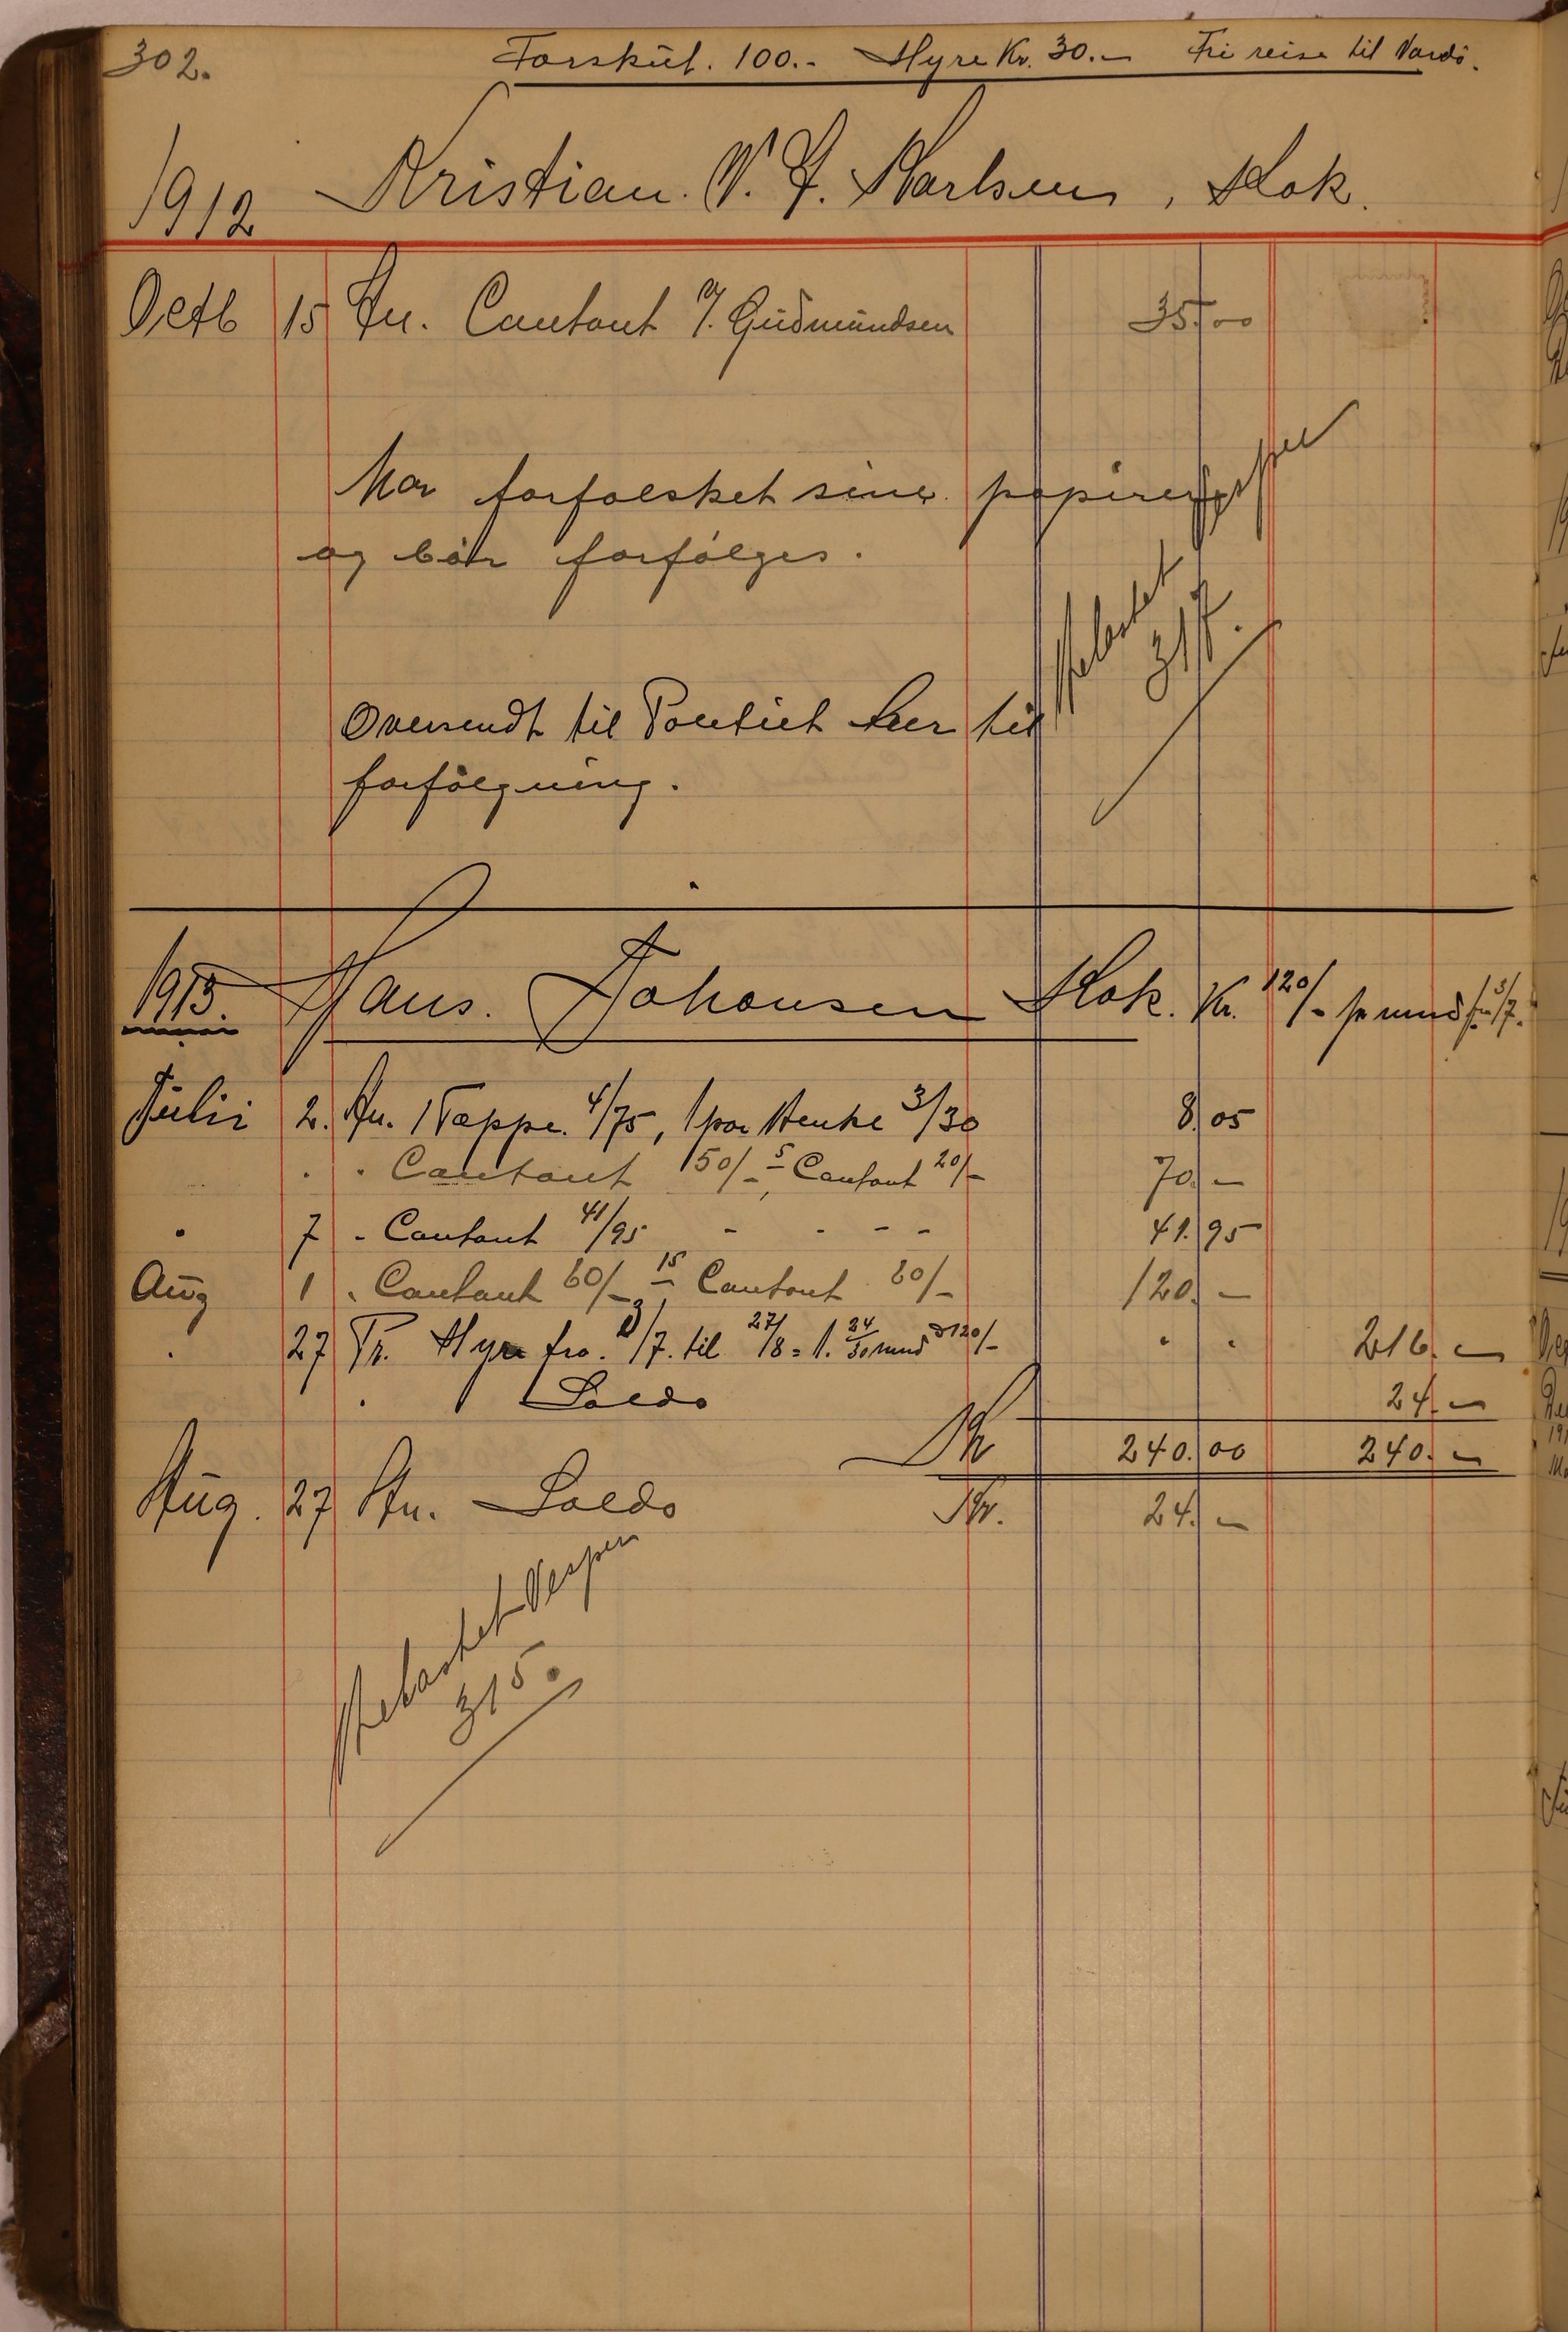 302.
Forskut. 100.- Hyre Kr. 30.- Fri reise til Vardö.
1912 Kristian. W. F. Karlsen, Kok.
Octb 15 An. Contant Gudmundsen 35.00
Har forfalsket sine papirer
og bör forfölges.
Oversendt til Politiet her til
forfölgning.
1913. Hans. Johansen Kok. Kr. 120/- pr mnd fra 3/7.
Julii 2. An. 1 Tæppe. 4/75, 1 par Benke 3/30 8.05
. . Contant 50/- 5 Contant 20/- 70.-
. 7 - Contant 41/95 - - - - 41.95
Aug 1 . Contant 60/- 15 Contant 60/- 120.-
. 27 Pr. Hyre fra. 3/7. til 27/8 = 1. 24/30 mnd à 120/- . . 216.-
. Saldo 24.-
Kr 240.00 240.-
Aug. 27 An. Saldo Kr. 24.-
belastet Vesper
315.